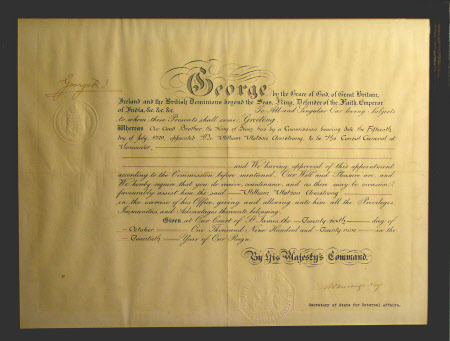 George R.I.
George by the Grace of God, of Great Britain,
Ireland and the British Dominions beyond the Seas, King, Defender of the Faith, Emperor
of India, &c. &c. &c. To All and Singular Our loving Subjects
to whom these Presents shall come Greeting.
Whereas Our Good Brother the King of has by a Commission bearing date the Fifteenth
day of July 1929, appointed Mr. William Watson Armstrong, to be His Consul General at
Vancouver,
and We having approved of this appointment
according to the Commission before mentioned Our Will and Pleasure are, and
We hereby require that you do receive, countenance, and as there may be occasion
favourably assist him the said William Watson Armstrong
in the exercise of his Office, giving and allowing unto him all the Privileges,
Immunities and Advantages thereunto belonging.
Given at Our Court of St. James, the day of
October One Thousand Nine Hundred and Twenty nine in the
Twentieth Year of Our Reign.
By His Majesty's Command.
Secretary of State for External Affairs.